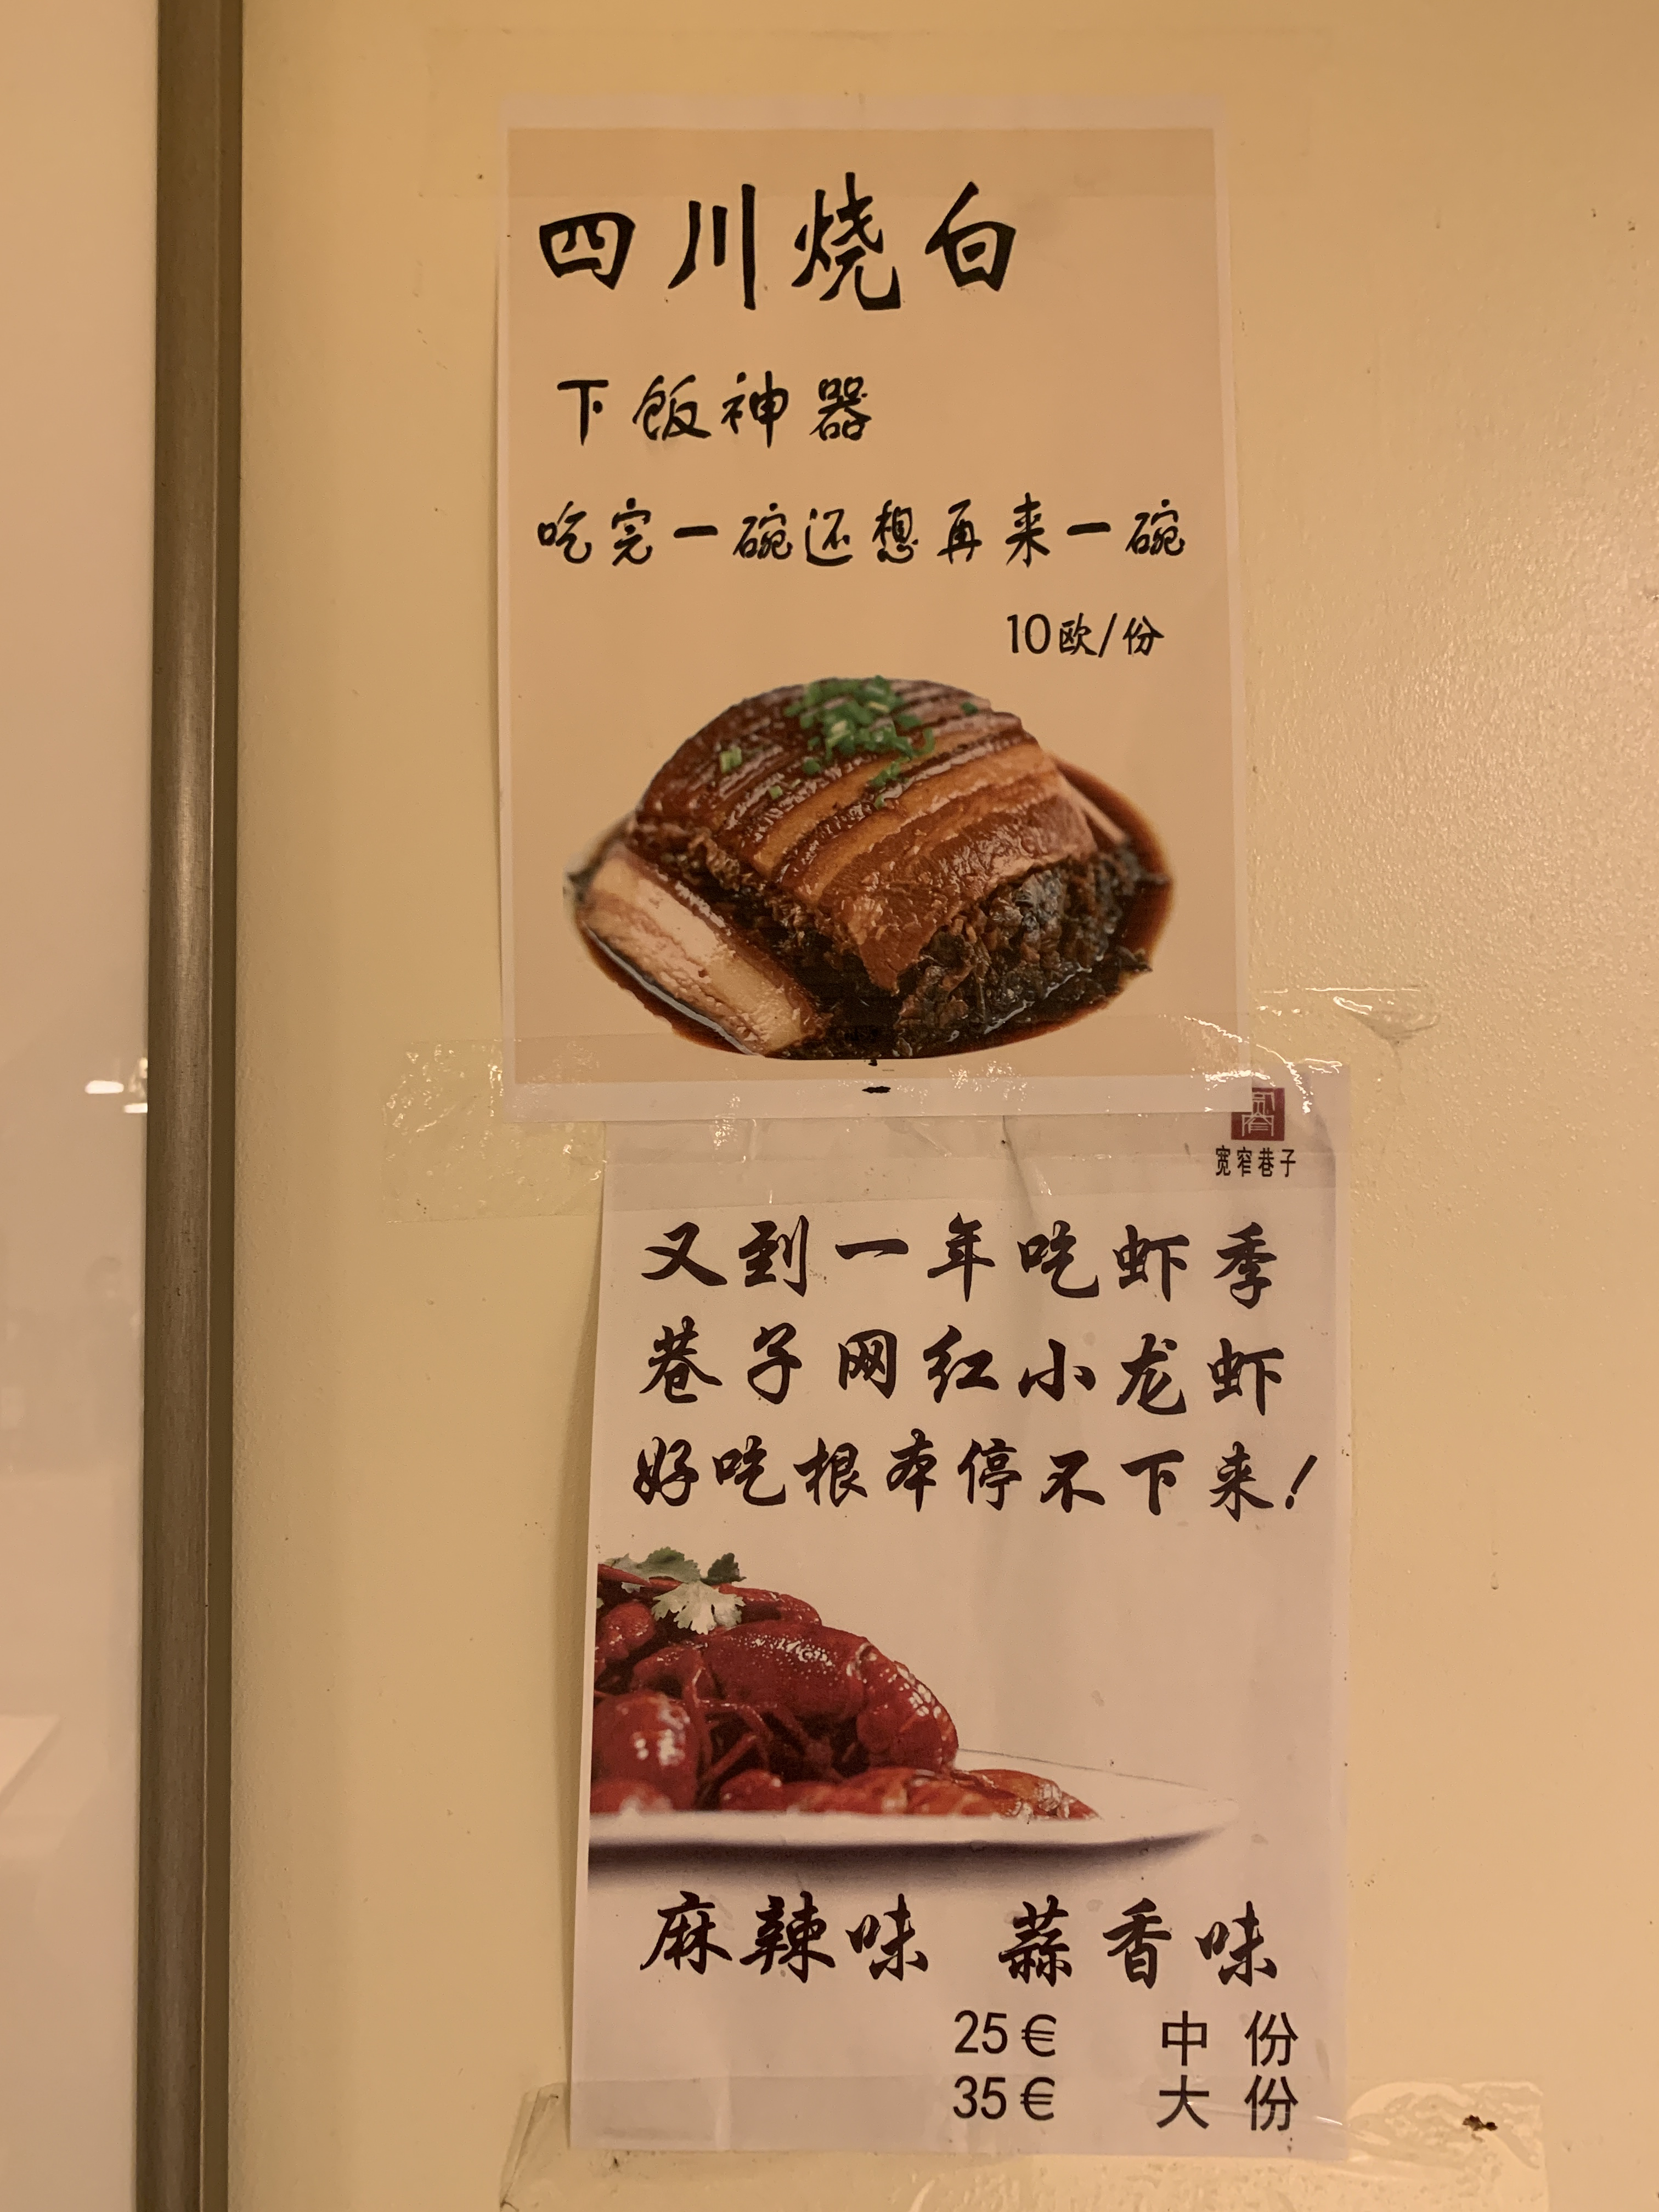 四川烧白
下饭神器
吃完一碗还想再来一碗
10欧/份
宽窄巷子
又到一年吃虾季
巷子网红小龙虾
好吃根本停不下来!
麻辣味 蒜香味
25€ 中份
35€ 大份